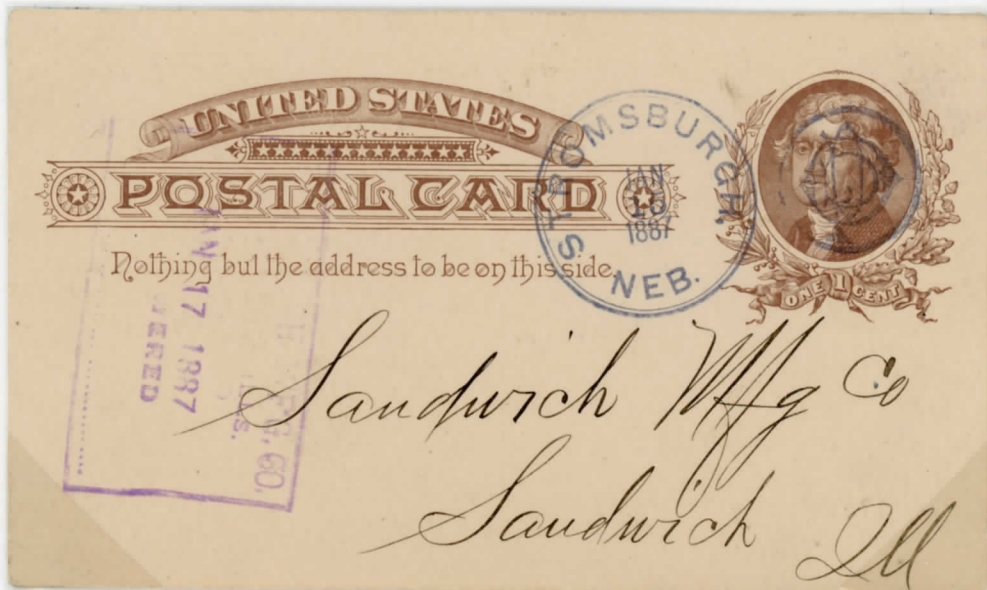 UNITED STATES
POSTAL CARD
Nothing but the address to be on this side.
STROMSBURGH,
JAN
1887
NEB.
ONE 1 CENT
17 1887
CO.
Sandwich Mfg Co
Sandwich
Ill